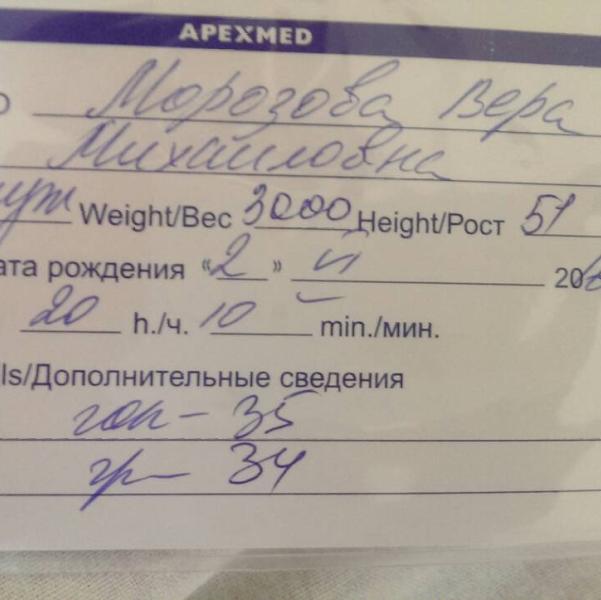 APEXMED
Морозова Вера
Михайловна
муж Weight/Вес 3000 Height/Рост 51
ата рождения «2» 20
20 h./ч. 10 min./мин.
ls/Дополнительные сведения
гол - 35
гр - 34